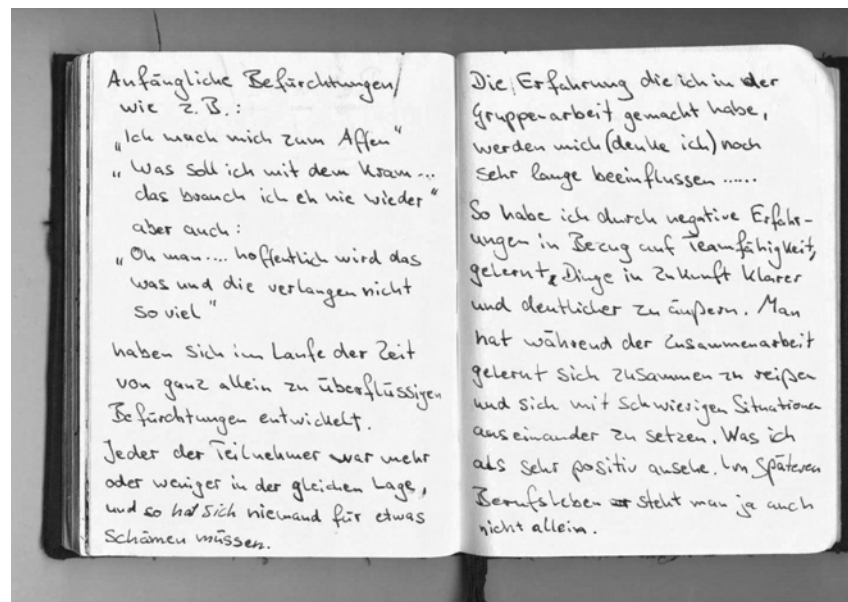 Anfängliche Befürchtungen,
wie z.B.:
„Ich mach mich zum Affen"
„Was soll ich mit dem Kram...
das brauch ich eh nie wieder"
aber auch:
„Oh man.... hoffentlich wird das
was und die verlangen nicht
so viel"
haben sich im Laufe der Zeit
von ganz allein zu überflüssigen
Befürchtungen entwickelt.
Jeder der Teilnehmer war mehr
oder weniger in der gleichen Lage,
und so hat sich niemand für etwas
schämen müssen.
Die Erfahrung die ich in der
Gruppenarbeit gemacht habe,
werden mich (denke ich) noch
sehr lange beeinflussen ......
So habe ich durch negative Erfahr-
ungen in Bezug auf Teamfähigkeit,
gelernt, Dinge in Zukunft klarer
und deutlicher zu äußern. Man
hat während der Zusammenarbeit
gelernt sich zusammen zu reißen
und sich mit schwierigen Situationen
auseinander zu setzen. Was ich
als sehr positiv ansehe. Im Späteren
Berufsleben steht man ja auch
nicht allein.